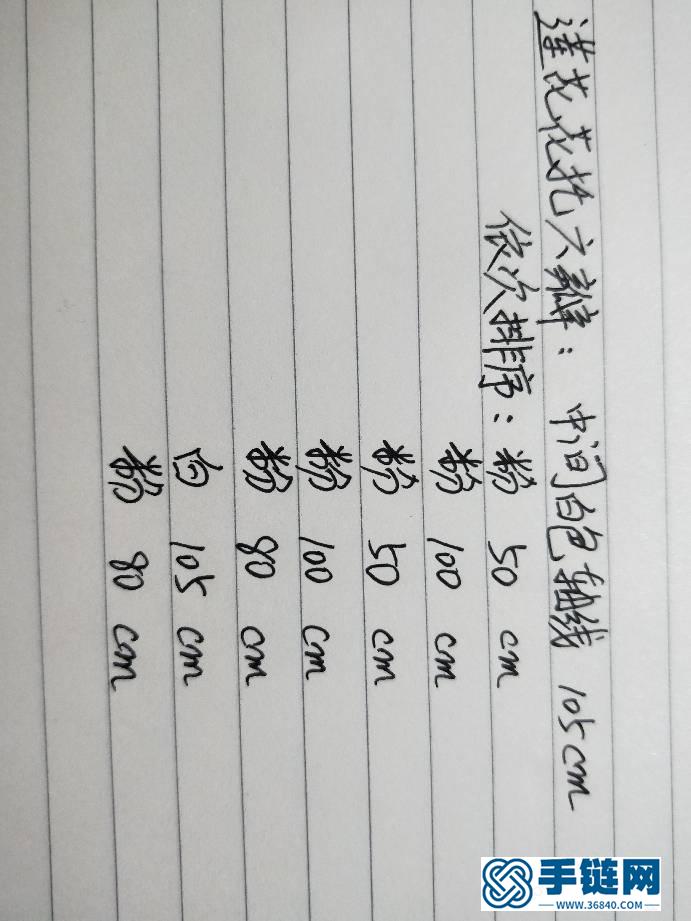 莲花花托六瓣：中间白色轴线 105cm
依次排序：粉 50 cm
粉 100 cm
粉 50 cm
粉 100 cm
粉 80 cm
白 105 cm
粉 80 cm
手链网
www.36840.com